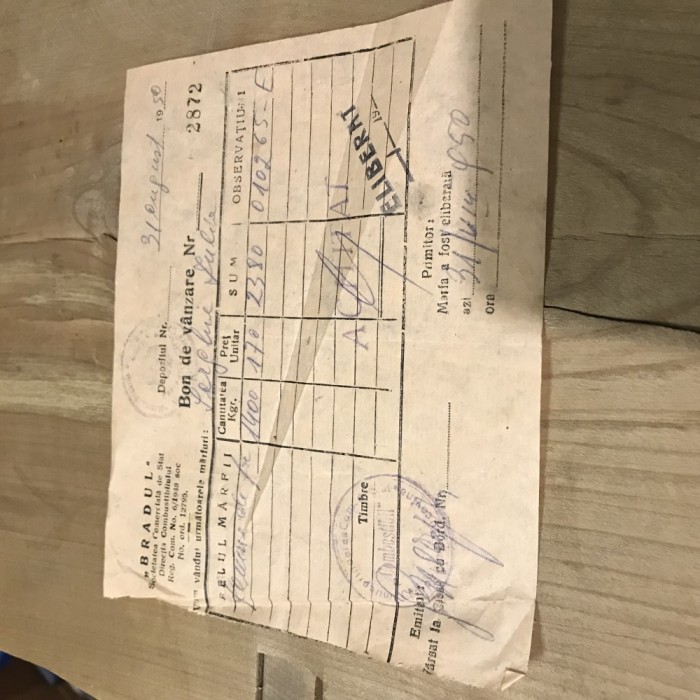 "BRADUL"
Societatea Comercială de Stat
Direcția Combustibilului
Reg. Com. No. 6/1948 soc
No. ord. 12795.
Depozitul Nr. 31 august 1950
Bon de vânzare Nr. 2872
vândut următoarele mărfuri:
FELUL MĂRFII
Cantitatea Kgr.
Preț Unitar
SUMA
OBSERVAȚIUNI
1400 170 2380 010265-E
ACHITAT
ELIBERAT
19
Timbre
Emitent
Vărsat la cu Bord. Nr.
Primitor:
Marfa a fost eliberată
azi 31 950
Ora